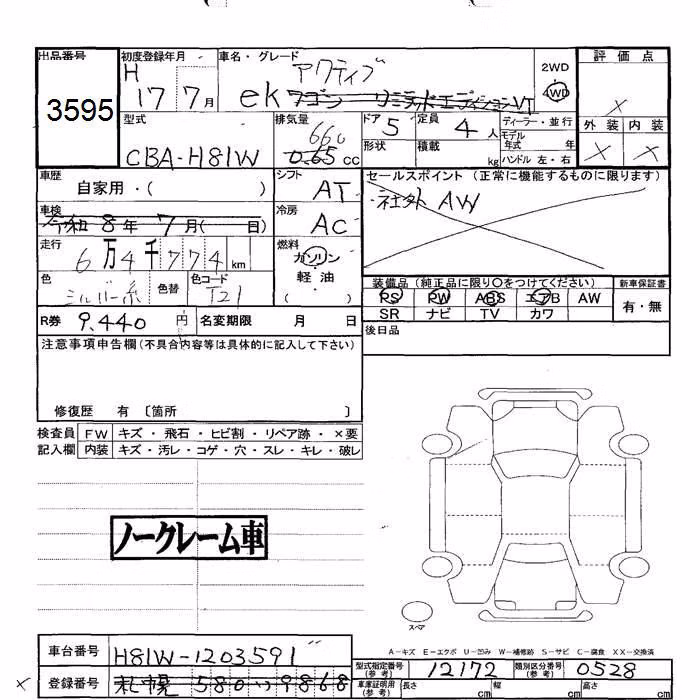 出品番号 初度登録年月 車名・グレード 評価点
3595 H 17 7月 アクティブ 2WD
ek ワゴン リミテッドエディションVT 4WD
型式 排気量 ドア 定員 ディーラー・並行 外装 内装
CBA-H81W 660 0.65 cc 5 4人 モデル年式 年
形状 積載 kg ハンドル 左・右
車歴 シフト セールスポイント (正常に機能するものに限ります)
自家用・( ) AT 社外 AW
車検 冷房
令和 8年 7月( 日) AC
走行 燃料
6万4千774km ガソリン
色 色替 色コード 軽油
シルバー系 T21 ( )
装備品 (純正品に限り○をつけてください) 新車保証書
PS PW ABS エアB AW 有・無
SR ナビ TV カワ
R券 9,440円 名変期限 月 日 後日品
注意事項申告欄(不具合内容等は具体的に記入して下さい)
修復歴 有 〔箇所 〕
検査員 FW キズ・飛石・ヒビ割・リペア跡・×要
記入欄 内装 キズ・汚レ・コゲ・穴・スレ・キレ・破レ
ノークレーム車
スペア
A-キズ E-エクボ U-凹み W-補修跡 S-サビ C-腐食 XX-交換済
車台番号 H81W-1203591
型式指定番号(参考) 12172 類別区分番号(参考) 0528
登録番号 札幌 580 い 9868
車庫証明用(参考) 長さ cm 幅 cm 高さ cm